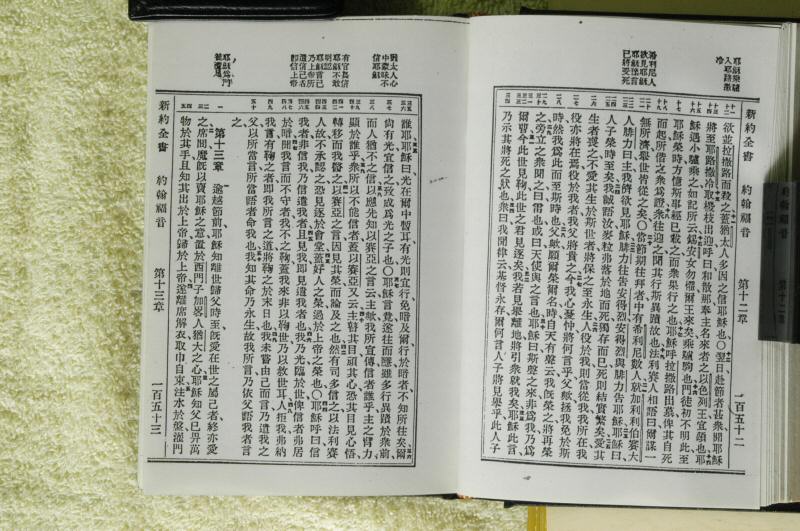 新約全書 約翰福音 第十二章 一百五十二
欲並拉撒路而殺之蓋猶太人多因之信耶穌也〇翌日赴節者甚衆聞耶穌
將至耶路撒冷取椶枝出迎呼曰和散那奉主名來者之以色列王宜頌也耶
穌遇小驢乘之如記所云錫安女勿懼爾王來矣乘驢駒也門徒初不明此至
耶穌榮時方憶斯事經已載之而衆果行之也耶穌呼拉撒路出墓俾其自死
而起所偕之衆爲證衆往迎之聞其行斯異蹟故也法利賽人相語曰爾謀一
無所濟舉世皆從之矣〇當節期往拜者中有希利尼數人就加利利伯賽大
人腓力曰主我儕欲見耶穌腓力往告安得烈安得烈與腓力告耶穌耶穌曰
人子榮時至矣我誠語汝麥粒弗落於地而死獨存而已死則結實繁矣愛其
生者喪之不愛其生於斯世者將保之至永生人役於我則當從我我所在我
役亦將在焉役於我者我父將貴之今我心憂忡將何言乎父歟拯我免於斯
時然我爲此而至斯時也父歟願榮爾名時自天有聲云我旣榮之將再榮
之旁立之衆聞之曰雷也或曰天使與之言也耶穌曰斯聲之來非爲我乃爲
爾曹也今世見鞫此世之君見逐矣我若見舉離地將引衆就我矣耶穌此言
乃示其將死之狀也衆曰我聞律云基督永存爾何言人子將見舉乎此人子
新約全書 約翰福音 第十三章 一百五十三
誰耶耶穌曰光在爾中暫耳有光則宜行免暗及爾行於暗者不知所往矣爾
尙有光宜信之致成爲光之子也〇耶穌言竟遂往而隱雖多行異蹟於衆前
而人猶不之信以應先知以賽亞之言云主歟我所宣傳信者誰乎主之臂力
顯於誰乎衆所以不能信者蓋以賽亞又云主瞽其目頑其心恐其目見心悟
轉移而我醫之以賽亞之言因見其榮而論及之也然有司多信之以法利賽
人故不承認之恐見逐於會堂蓋好人之榮過於上帝之榮也〇耶穌呼曰信
我者非信我乃信遣我者且見我卽見遣我者也我乃光臨於世俾信者弗居
於暗聞我言而不守者我不之鞫蓋我來非以鞫世乃以救世耳人拒我弗納
我言有鞫之者卽我所言之道將鞫之於末日也我未嘗由己而言乃遣我之
父以所當言所當語者命我也我知其命乃永生故我所言乃依父語我者言
之
第十三章 逾越節前耶穌知離世歸父時至旣愛在世之屬己者終亦愛
之席間魔旣以賣耶穌之意置於西門子加畧人猶大之心耶穌知父已畀萬
物於其手且知其出於上帝歸於上帝遂離席解衣取巾自束注水於盤濯門